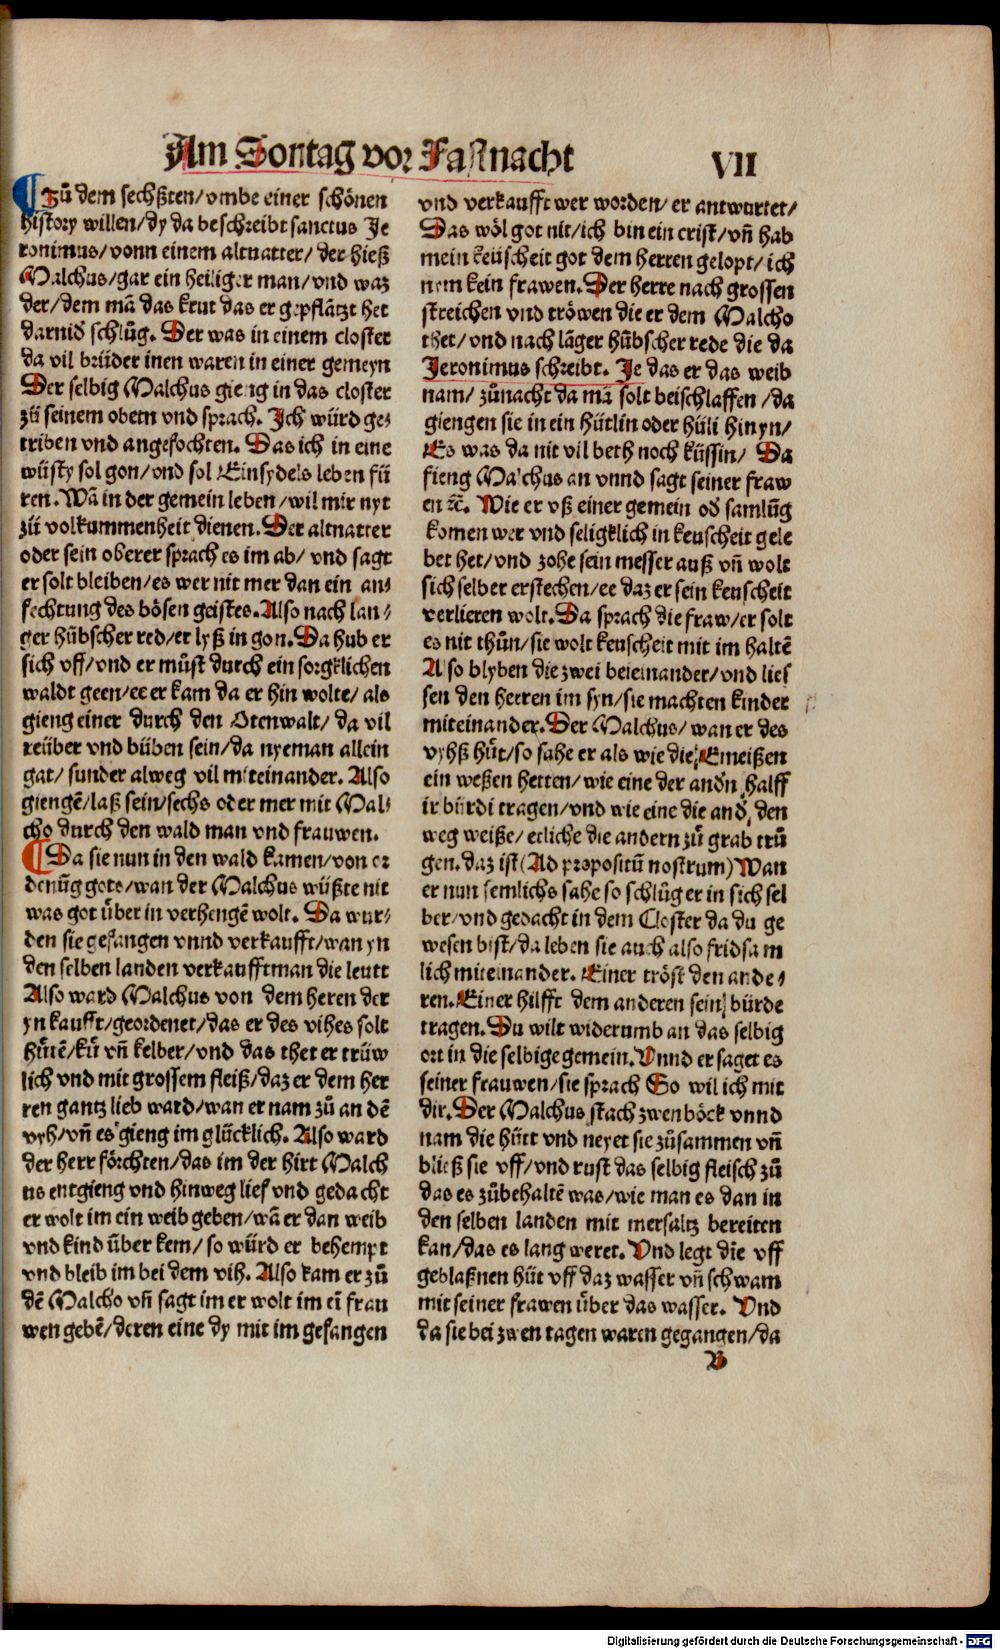 Am Sontag vor Fastnacht
VII
¶ Zū dem sechßten/vmbe einer schönen
history willen/dy da beschreibt sanctus Je
ronimus/vonn einem altuatter/der hieß
Malchus/gar ein heiliger man/vnd waz
der/dem mā das krut das er gepflātzt het
darnid schlūg. Der was in einem closter
da vil brüder inen waren in einer gemeyn
Der selbig Malchus gieng in das closter
zů seinem obern vnd sprach. Ich würd ge⸗
triben vnd angefochten. Das ich in eine
wüsty sol gon/vnd sol Einsydels leben fü
ren. Wā in der gemein leben/wil mir nyt
zů volkummenheit dienen. Der altuatter
oder sein oberer sprach es im ab/vnd sagt
er solt bleiben/es wer nit mer dan ein an⸗
fechtung des bösen geistes. Also nach lan⸗
ger hübscher red/er lyß in gon. Da hub er
sich vff/vnd er můst durch ein sorgklichen
waldt geen/ee er kam da er hin wolte/als
gieng einer durch den Otenwalt/da vil
reüber vnd büben sein/da nyeman allein
gat/sunder alweg vil miteinander. Also
giengē/laß sein/sechs oder mer mit Mal⸗
cho durch den wald man vnd frauwen.
¶ Da sie nun in den wald kamen/von or
denūg gots/wan der Malchus wüßte nit
was got über in verhengē wolt. Da wur⸗
den sie gefangen vnnd verkaufft/wan yn
den selben landen verkaufft man die leutt
Also ward Malchus von dem heren der
yn kaufft/geordenet/das er des vihes solt
hůtē/kü vñ kelber/vnd das thet er trüw
lich vnd mit grossem fleiß/daz er dem her
ren gantz lieb ward/wan er nam zů an dē
vyh/vñ es gieng im glücklich. Also ward
der herr förchten/das im der hirt Malch
us entgieng vnd hinweg lief vnd gedacht
er wolt im ein weib geben/wā er dan weib
vnd kind über kem/so würd er behempt
vnd bleib im bei dem vih. Also kam er zů
dē Malcho vñ sagt im er wolt im eī frau
wen gebē/deren eine dy mit im gefangen
vnd verkaufft wer worden/er antwurtet/
Das wöl got nit/ich bin ein crist/vñ hab
mein keüscheit got dem herren gelopt/ich
nem kein frawen. Der herre nach grossen
streichen vnd tröwen die er dem Malcho
thet/vnd nach lāger hübscher rede die da
Jeronimus schreibt. Je das er das weib
nam/zůnacht da mā solt beischlaffen/da
giengen sie in ein hütlin oder hüli hinyn/
Es was da nit vil beth noch küssin/ Da
fieng Malchus an vnnd sagt seiner fraw
en ⁊c̄. Wie er vß einer gemein od samlūg
komen wer vnd seligklich in keuscheit gele
bet het/vnd zohe sein messer auß vñ wolt
sich selber erstechen/ee daz er sein keuscheit
verlieren wolt. Da sprach die fraw/er solt
es nit thūn/sie wolt keuscheit mit im haltē
Also blyben die zwei beieinander/vnd lies
sen den herren im syn/sie machten kinder
miteinander. Der Malchus/wan er des
vyhß hůt/so sahe er als wie die Emeißen
ein weßen hetten/wie eine der andn halff
ir bürdi tragen/vnd wie eine die and den
weg weiße/etliche die andern zů grab trū
gen. daz ist (Ad propositū nostrum) Wan
er nun semlichs sahe so schlūg er in sich sel
ber/vnd gedacht in dem Closter da du ge
wesen bist/da leben sie auch also fridsam
lich miteinander. Einer tröst den ande⸗
ren. Einer hilfft dem anderen sein bürde
tragen. Du wilt widerumb an das selbig
ort in die selbige gemein. Vnnd er saget es
seiner frauwen/sie sprach So wil ich mit
dir. Der Malchus stach zwen böck vnnd
nam die hütt vnd neyet sie zůsammen vñ
bließ sie vff/vnd rust das selbig fleisch zů
das es zůbehaltē was/wie man es dan in
den selben landen mit mersaltz bereiten
kan/das es lang weret. Vnd legt die vff
geblaßnen hüt vff daz wasser vñ schwam
mit seiner frawen über das wasser. Vnd
da sie bei zwen tagen waren gegangen/da
B
Digitalisierung gefördert durch die Deutsche Forschungsgemeinschaft - DFG